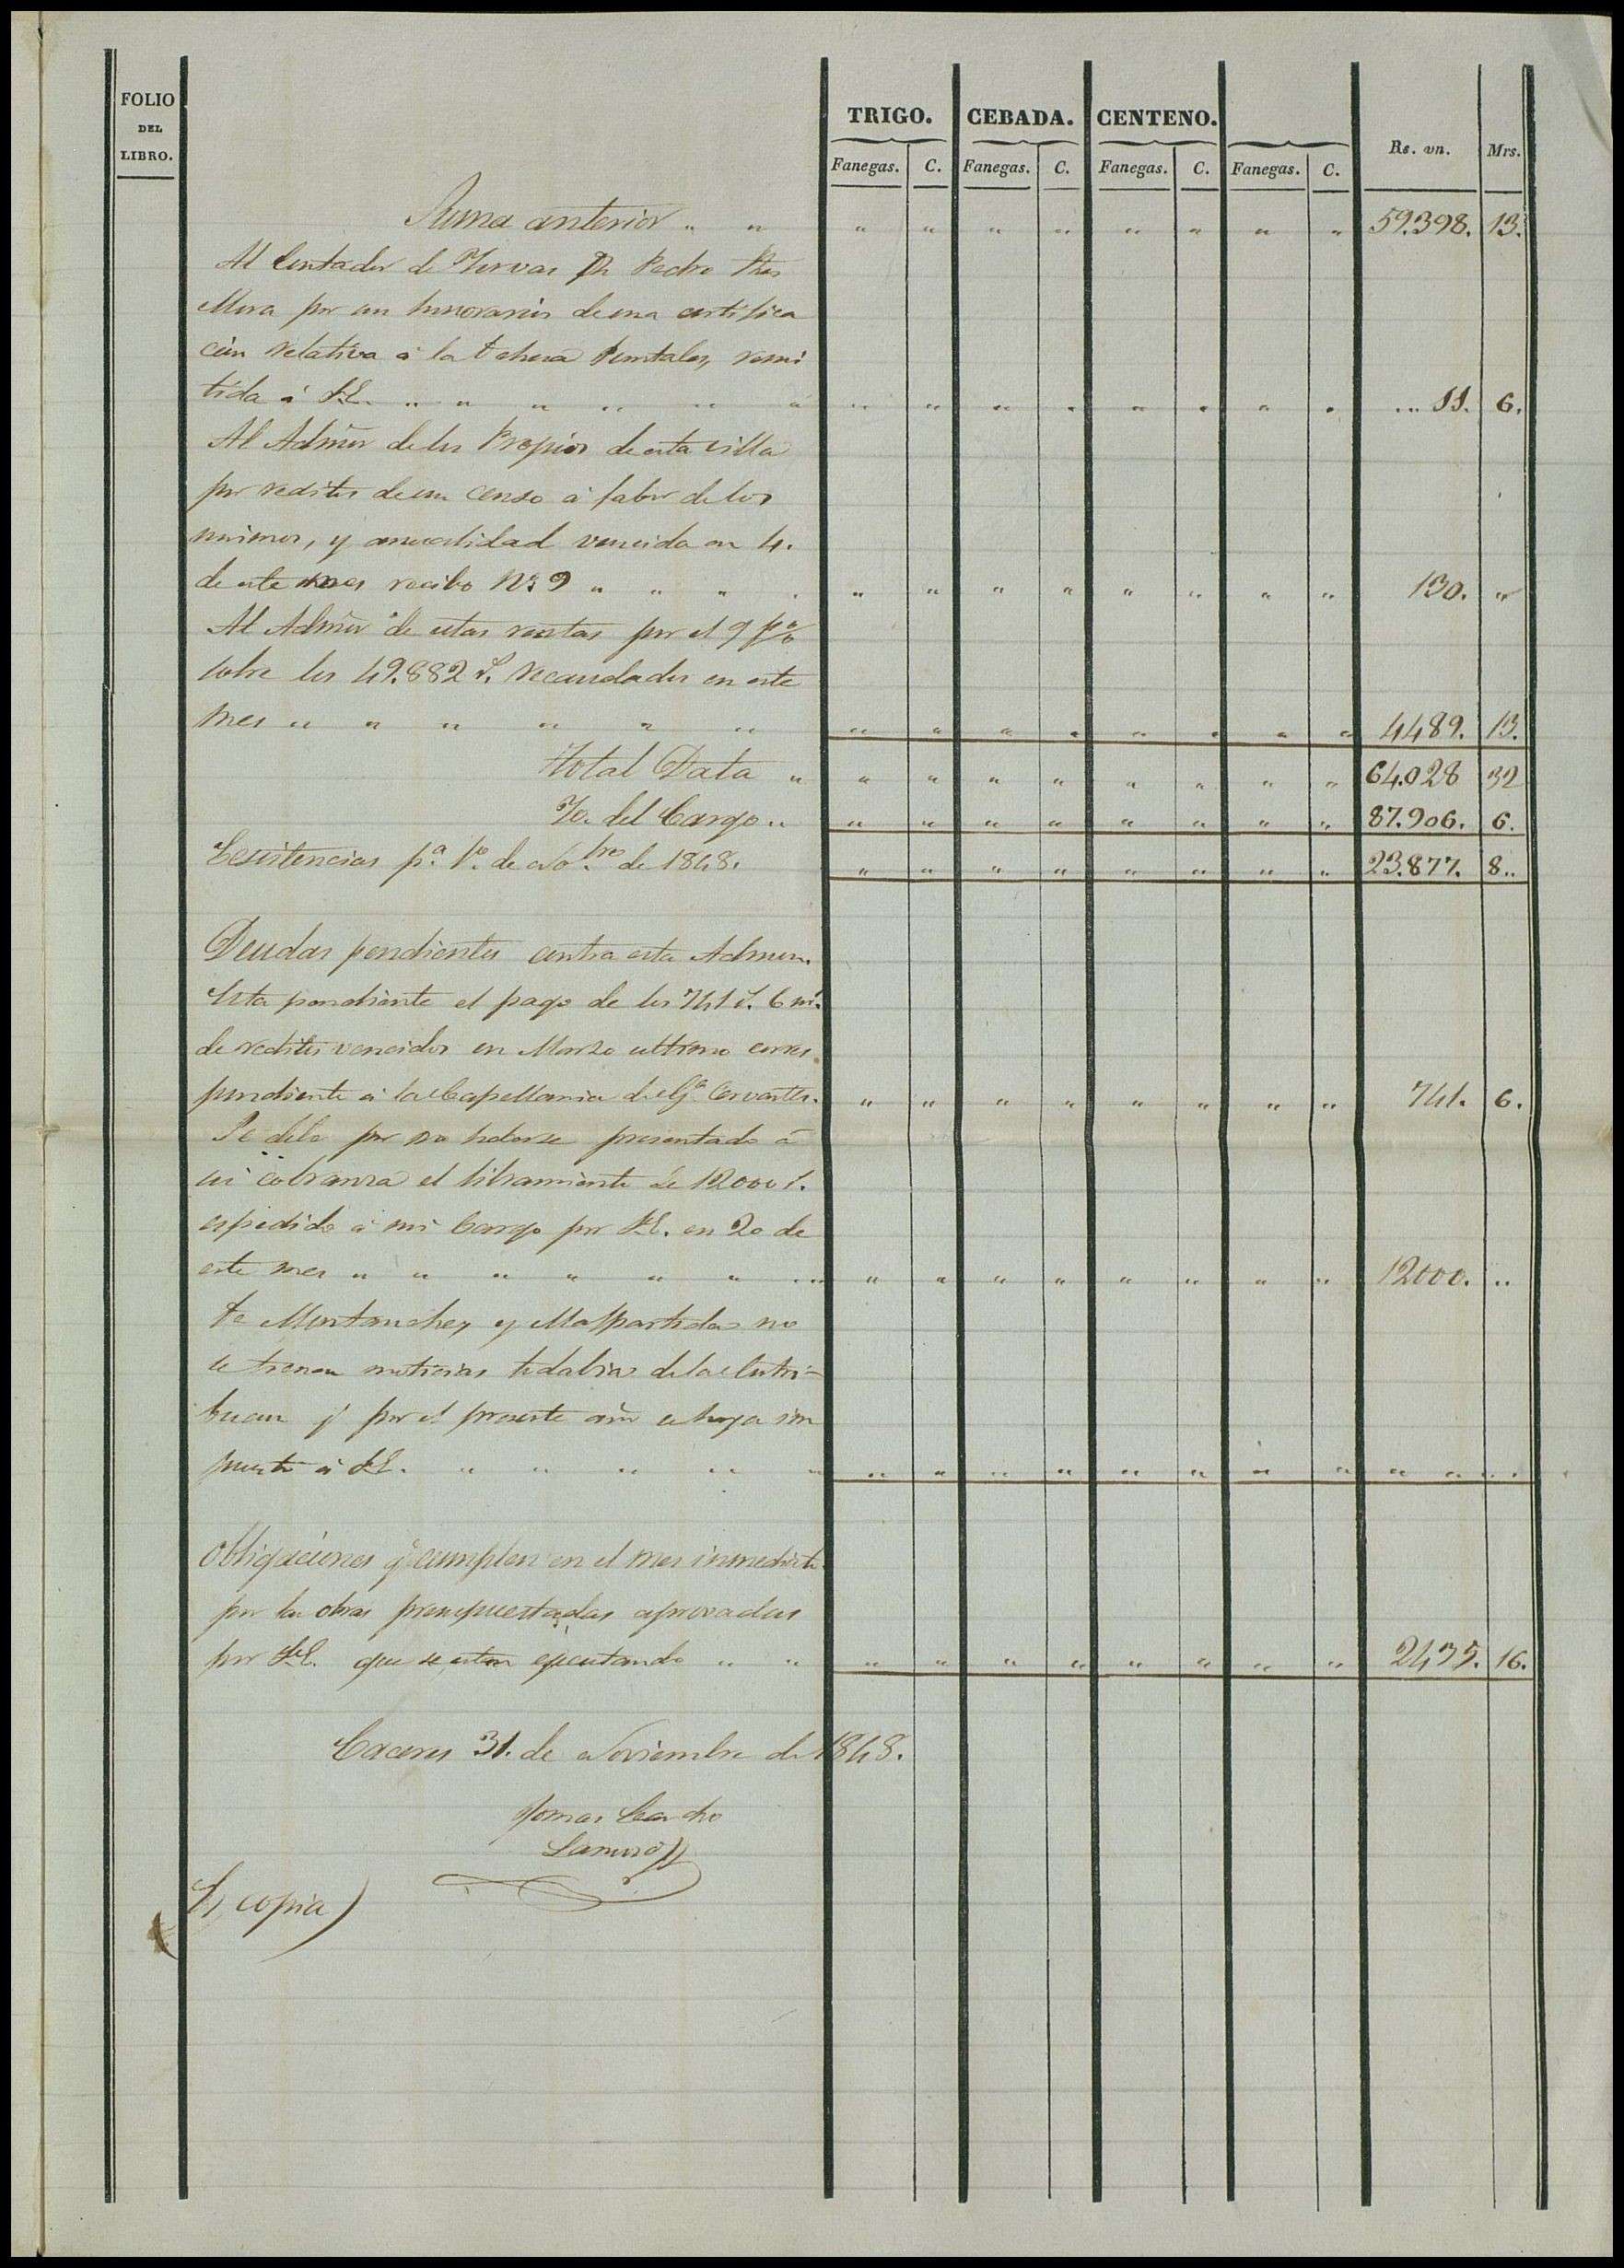 FOLIO
DEL
LIBRO.
TRIGO. CEBADA. CENTENO.
Fanegas. C. Fanegas. C. Fanegas. C. Fanegas. C. Rs. vn. Mrs.
Suma anterior " " " " " " " " " " 59.398. 13.
Al Contador de Dn Pedro
Mora por sus honorarios de una certifica
cion relativa á la dehesa remi
tida á S.E. " " " " " " " " " " " " " " 11. 6.
Al Admor de los Propios de esta villa
por reditos de un censo á fabor de los
mismos, y anualidad vencida en 4.
de este mes recibo Nº 9 " " " " " " " " " " " " 130. "
Al Admor de estas rentas por el 9 p%
sobre los 49.882 r. recaudados en este
mes " " " " " " " " " " " " " " 4489. 13.
Total Data " " " " " " " " " 64.028 32
Yd. del Cargo " " " " " " " " " 87.906. 6.
Existencias pª. 1º. de Nobre. de 1848. " " " " " " " " 23.877. 8..
Deudas pendientes contra esta Admon.
Esta pendiente el pago de los 741 r. 6 ms.
de reditos vencidos en Marzo ultimo corres
pondiente á la Capellania de Cervantes. " " " " " " " " 741. 6.
Se debe por no haberse presentado á
su cobranza el libramiento de 12000 r.
espedido á mi cargo por S.E. en 20 de
este mes " " " " " " " " " " " " " " " 12000. "
De Montanchez y Malpartida no
se tienen noticias todabia de la Contri-
bucion q. por el presente año se haya im
puesto á S.E. " " " " " " " " " " " " " " " "
Obligaciones q. cumplen en el mes inmediato
por las obras presupuestadas aprovadas
por S.E. que se estan ejecutando " " " " " " " " " " 2435. 16.
Caceres 31. de Noviembre de 1848.
Tomas
Es copia)